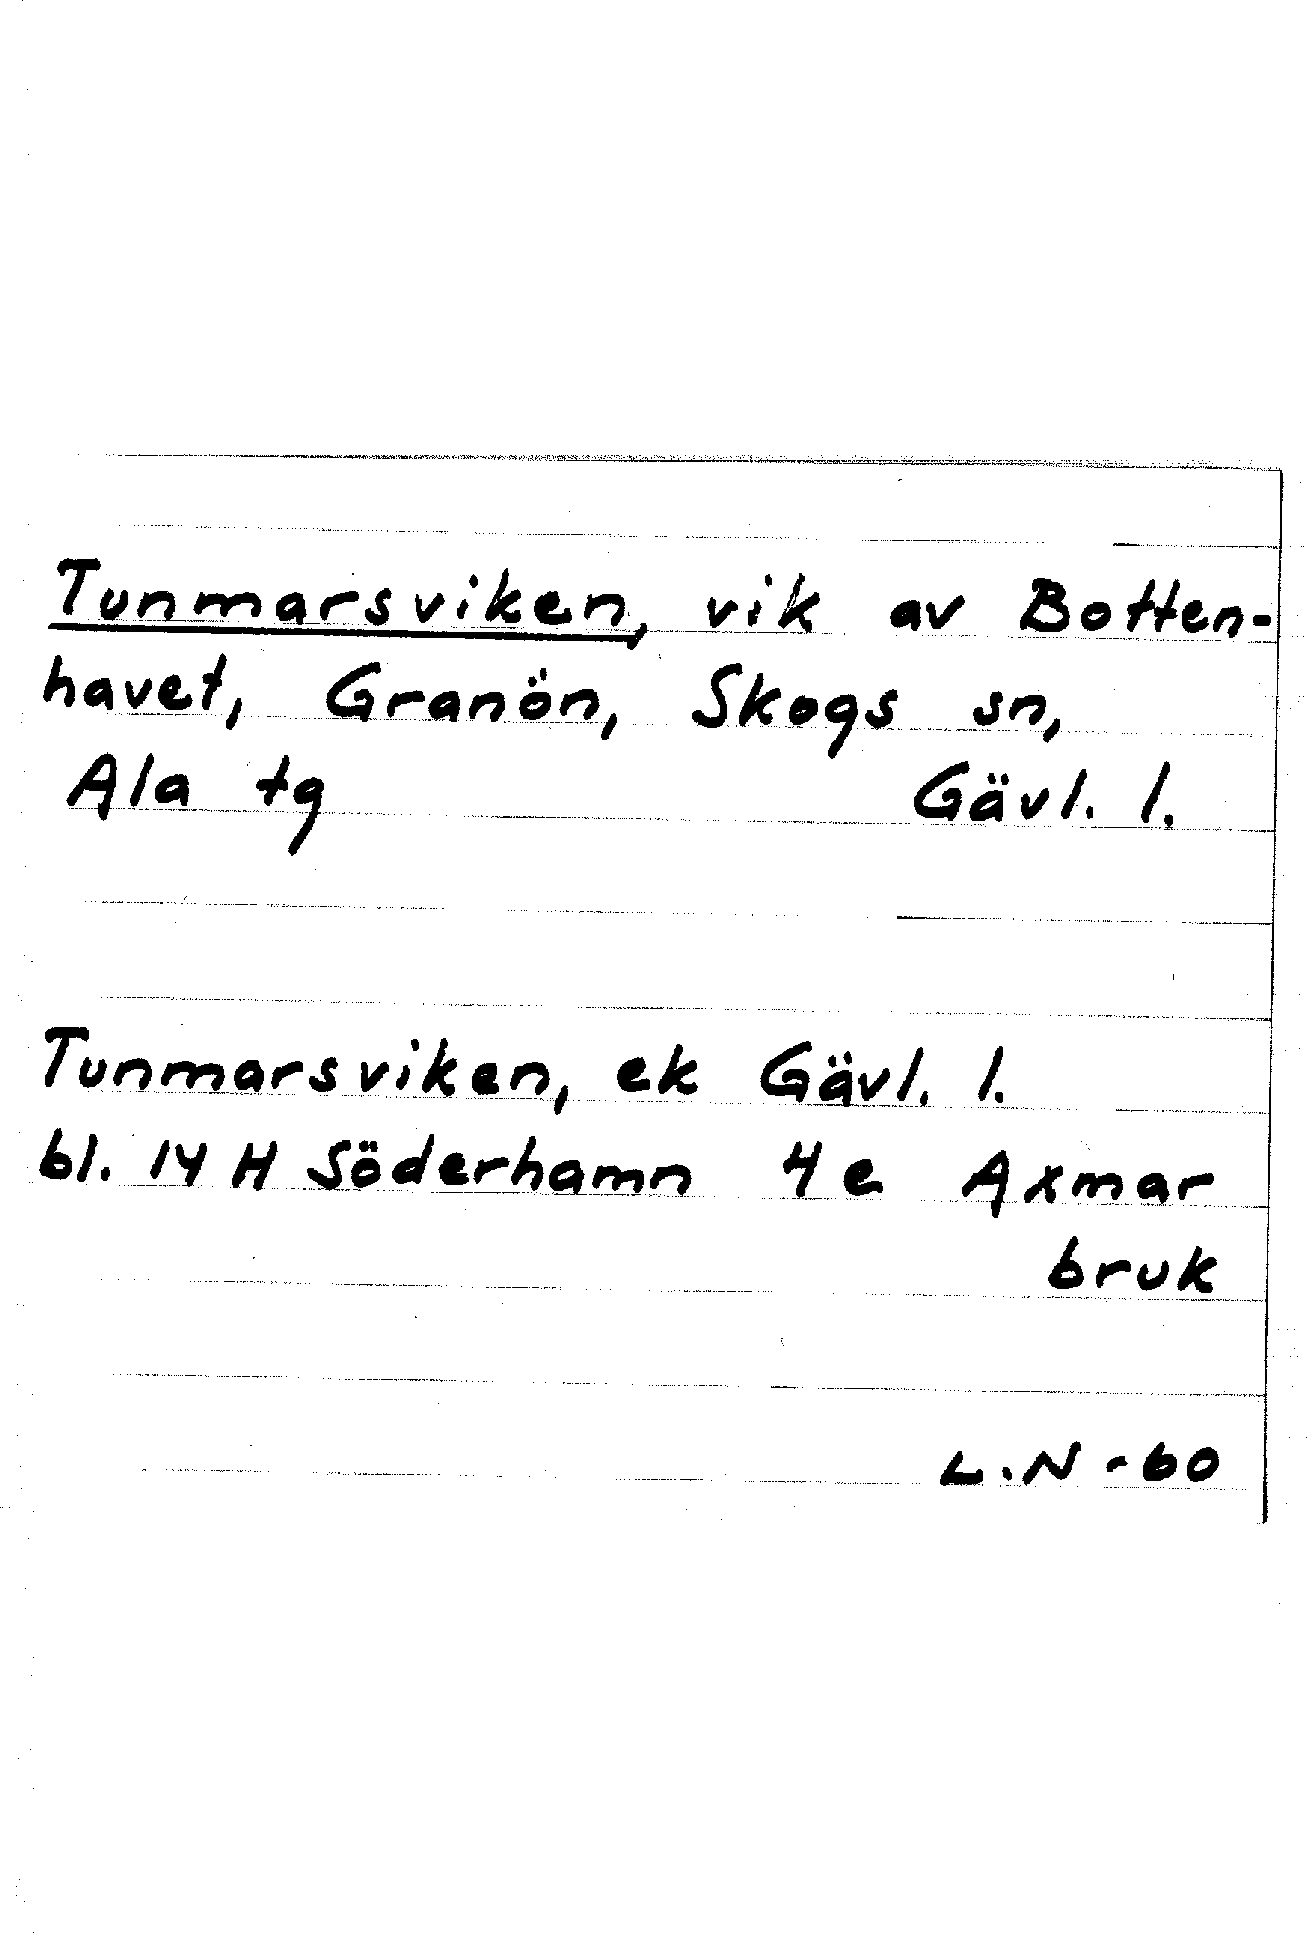 Tunmarsviken, vik av Botten-
havet, Granön, Skogs sn,
Ala tg Gävl. l.
Tunmarsviken, ek Gävl. l.
bl. 14 H Söderhamn 4 e Axmar
bruk
L.N -60